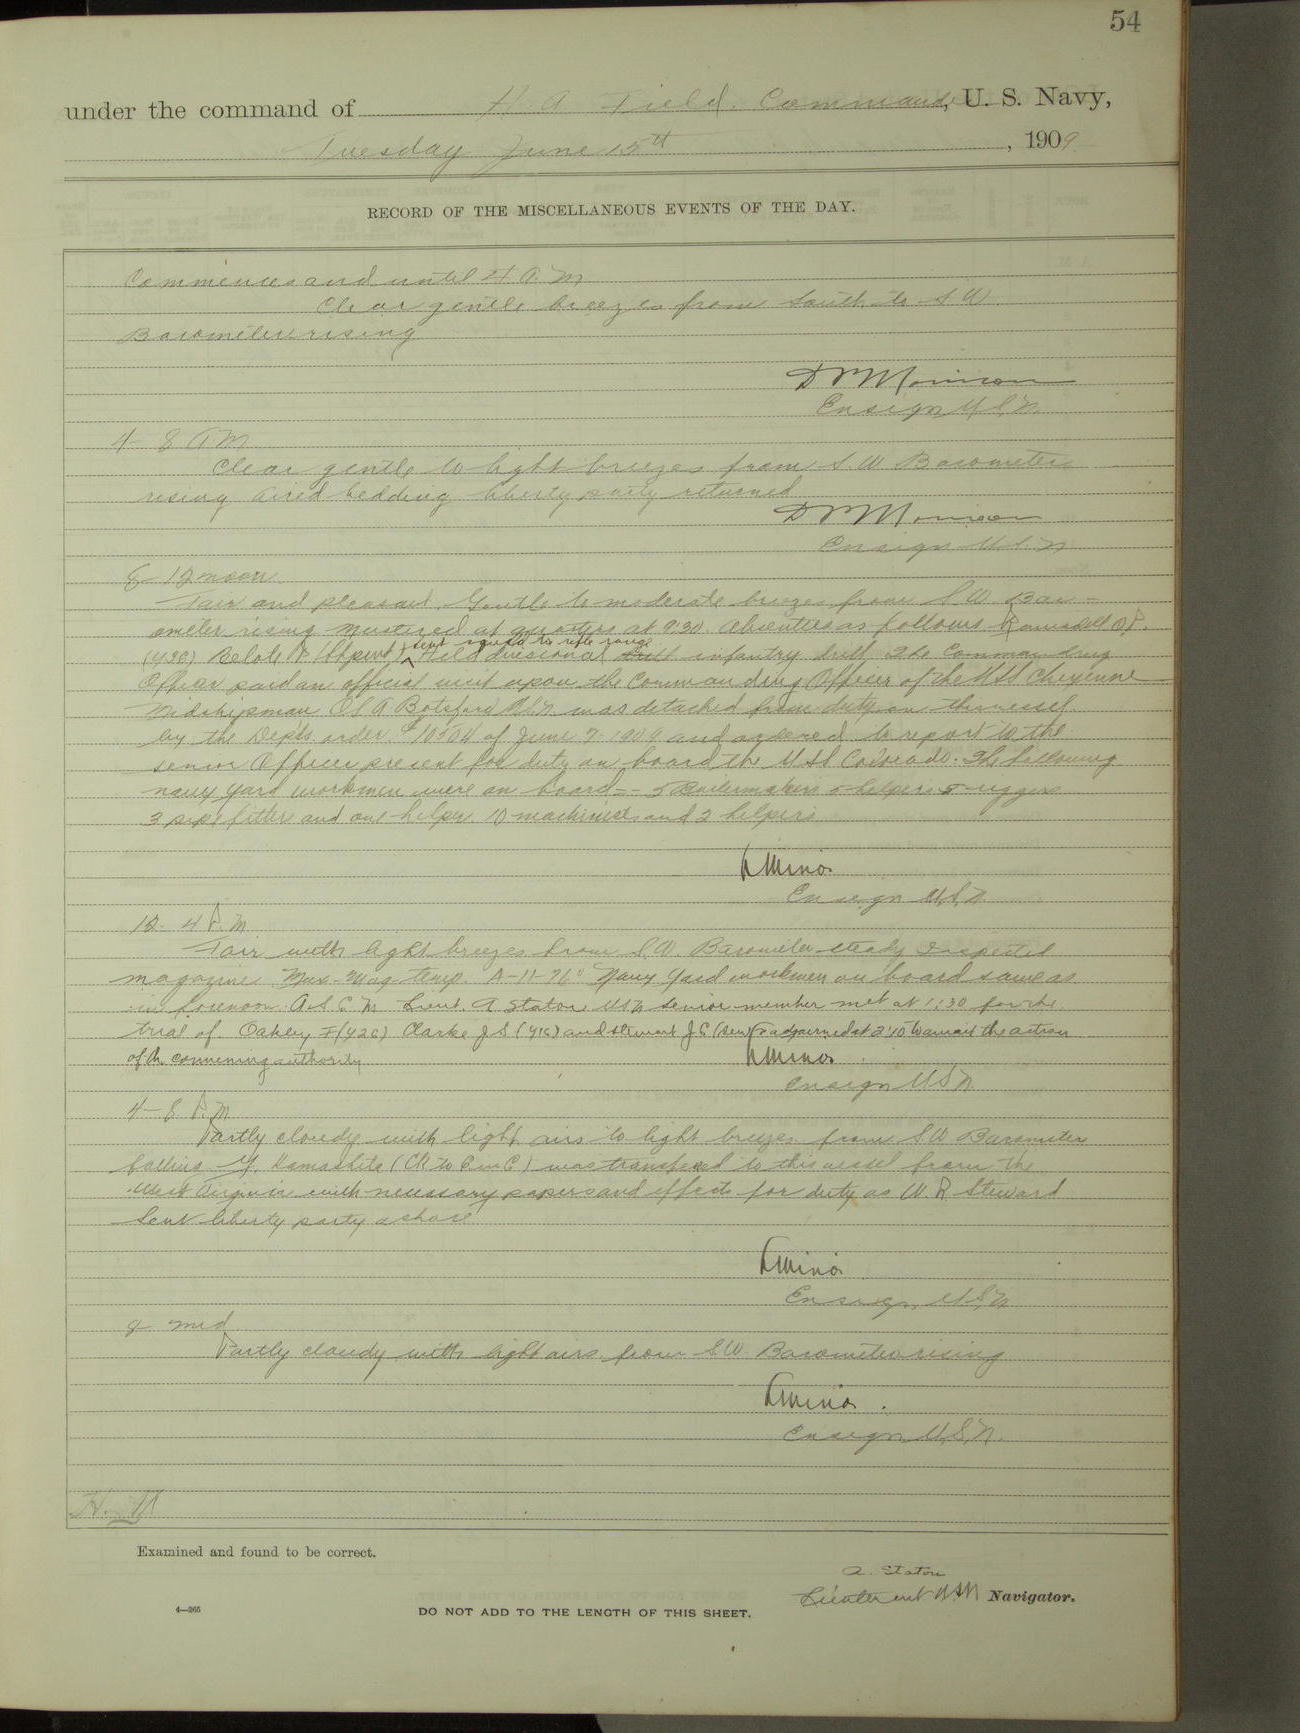 54
under the command of H. A. Field, Commander, U. S. Navy,
Tuesday June 15th, 1909
RECORD OF THE MISCELLANEOUS EVENTS OF THE DAY.
Commences and until 4 A.M
Clear gentle breezes from South to S W
Barometer rising
Ensign U.S.N.
4- 8 A M
Clear gentle to light breezes from S. W Barometer
rising Aired bedding liberty party returned
Ensign U.S.N
8- 12 noon
Fair and pleasant. Gentle to moderate breezes from S.W. Bar-
ometer rising Mustered at quarters at 9:30. Absentees as follows
sent squad to rifle range
Held divisional infantry drill The Commanding
Officer paid an official visit upon the Commanding Officer of the USS Cheyenne
Midshipman Botsford U.S.N. was detached from duty on this vessel
by the Dept's order # of June 7 1909 and ordered to report to the
senior Officer present for duty on board the U S S Colorado. The following
navy yard workmen were on board - 5 Boilermakers 5 helpers 5 riggers
3 pipe fitters and one helper 10 machinists and 2 helpers
R Minor
Ensign U.S.N.
12- 4 P. M
Fair with light breezes from S.W. Barometer steady Inspected
magazines Max. Mag temp. A-11-76° Navy Yard workmen on board same as
in forenoon. A S C M Lieut. A Staton USN senior member met at 1:30 for the
trial of Oakley, F (Y2c) Clarke J S (Y1c) and Stewart J C (Sea) & adjourned at 2:10 to await the action
of the convening authority
R Minor
Ensign USN
4-8 P. M
Partly cloudy with light airs to light breezes from S W Barometer
falling Y. Kamashita was transferred to this vessel from the
West Virginia with necessary papers and effects for duty as W R Steward
Sent liberty party ashore
R Minor
Ensign, U.S.N
8 mid
Partly cloudy with light airs from S.W. Barometer rising
R Minor.
Ensign U.S.N.
Examined and found to be correct.
A. Staton
Lieutenant USN Navigator.
4-265
DO NOT ADD TO THE LENGTH OF THIS SHEET.